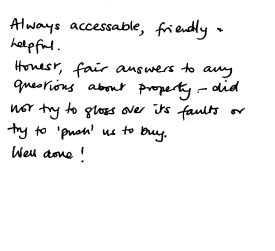 Always accessable, friendly +
helpful.
Honest, fair answers to any
questions about property – did
not try to gloss over its faults or
try to 'push' us to buy.
Well done!